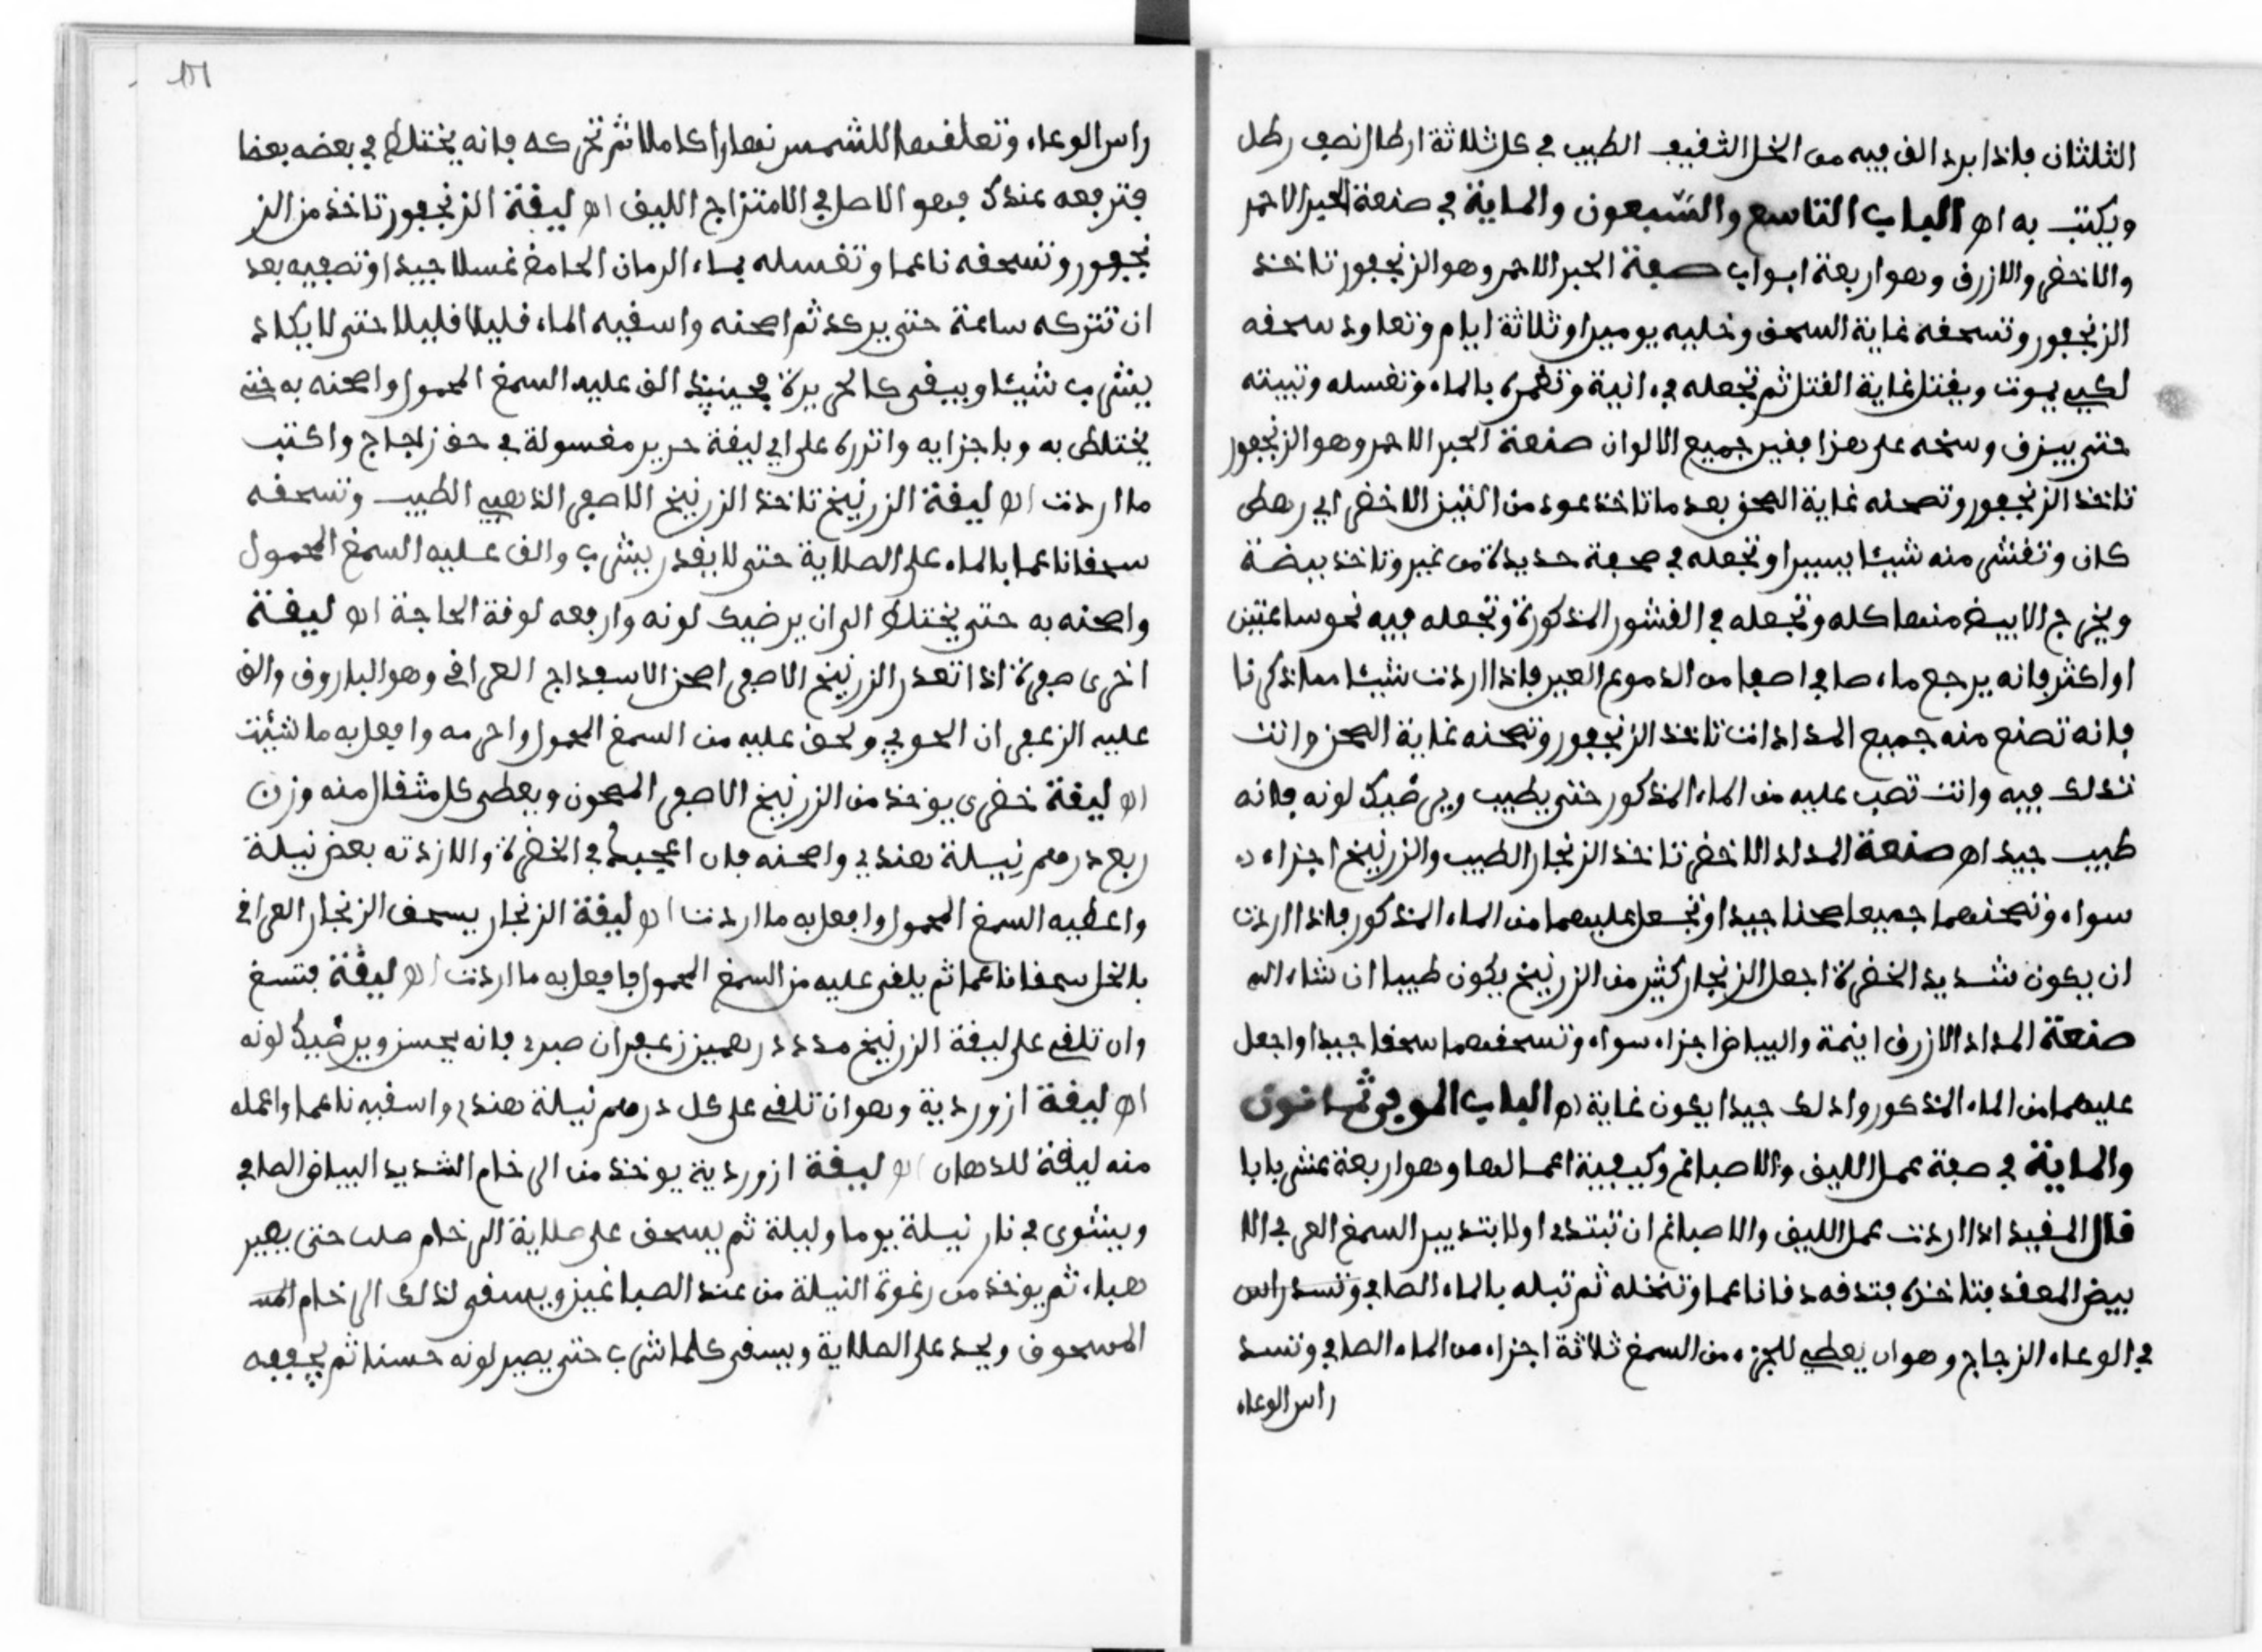 الثلثان فاذا برد الق فيه من الخل الثقيف الطيب في كل ثلاثة ارطال نصف رطل
ويكتب به اه الباب التاسع والسبعون والماية في صنعة الحبر الاحمر
والاخضر والازرق وهو اربعة ابواب صفة الحبر الاحمر وهو الزنجفور تاخذ
الزنجفور وتسحقه غاية السحق وخليه يومين او ثلاثة ايام وتعاود سحقه
لكيي يموت ويقتل غاية القتل ثم تجعله في انية وتغمره بالماء وتغسله وتبيته
حتى يبزق وسخه على هذا بغير جميع الالوان صنعة الحبر الاحمر وهو الزنجفور
تاخذ الزنجفور وتصحنه غاية الصحن بعد ما تاخذ عود من التين الاخضر اي رهط
كان وتقشر منه شيئا يسيرا وتجعله في صحفة حديدة من غير وتاخذ بيضة
ويخرج الابيض منها كله وتجعله في القشور المذكورة وتجعله فيه نحو ساعتين
او اكثر فانه يرجع ماء صافي اصفا من الدموع العين فاذا اردت شيئا مما ذكرنا
فانه تصنع منه جميع المدادات تاخذ الزنجفور وتصحنه غاية الصحن وانت
تدلك فيه وانت تصب عليه من الماء المذكور حتى يطيب ويرضيك لونه فانه
طيب جيد اه صنعة المداد الاخضر تاخذ الزنجار الطيب والزرنيخ اجزاء
سواء وتصحنهما جميعا صحنا جيدا وتجعل عليهما من الماء المذكور فاذا اردت
ان يكون شديد الخضرة اجعل الزنجار كثير من الزرنيخ يكون طيبا ان شاء الله
صنعة المداد الازرق انيمة والبياض اجزاء سواء وتسحقهما سحقا جيدا واجعل
عليهما من الماء المذكور وادلك جيدا يكون غاية اه الباب الموفي ثمانون
والماية في صفة عمل الليق والاصباغ وكيفية اعمالها وهو اربعة عشر بابا
قال المفيد اذا اردت عمل الليق والاصباغ ان تبتدي اولا بتدبير السمغ العربي الا
بيض المعقد فتاخذه فتدقه دقا ناعما وتنخله ثم تبله بالماء الصافي وتسد راس
في الوعاء الزجاج وهو ان يعطي للجزء من السمغ ثلاثة اجزاء من الماء الصافي وتسد
راس الوعاء
راس الوعاء وتعلقها للشمس نهارا كاملا ثم تحركه فانه يختلط في بعضه بعضا
فترفعه عندك فهو الاصل في الامتزاج الليق اه ليقة الزنجفور تاخذ من الز
نجفور وتسحقه ناعما وتغسله بماء الرمان الحامض غسلا جيدا وتصفيه بعد
ان تتركه ساعة حتى يركد ثم اصحنه واسقيه الماء قليلا قليلا حتى لا يكاد
يشرب شيئا ويبقى كالحريرة فحينيذ الق عليه السمغ المحمول واصحنه به حتى
يختلط به وباجزايه واتركه على اي ليقة حرير مغسولة في حق زجاج واكتب
ما اردت اه ليقة الزرنيخ تاخذ الزرنيخ الاصفر الذهبي الطيب وتسحقه
سحقا ناعما بالماء على الصلاية حتى لا يقدر يشرب والق عليه السمغ المحمول
واصحنه به حتى يختلط الى ان يرضيك لونه وارفعه لوقة الحاجة اه ليقة
اخرى صفرة اذا تعذر الزرنيخ الاصفر اصحن الاسفداج العراقي وهو الباروق والق
عليه الزعفران الحوفي ولحق عليه من السمغ المحمول واحرمه وافعل به ما شيئت
اه ليقة خضرى يوخذ من الزرنيخ الاصفر المصحون ويعطى كل مثقال منه وزن
ربع درهم نيلة هندي واصحنه فان اعجبك في الخضرة والا زدته بعض نيلة
واعطيه السمغ المحمول وافعل به ما اردت اه ليقة الزنجار يسحق الزنجار العراقي
بالخل سحقا ناعما ثم يلقى عليه من السمغ المحمول فافعل به ما اردت اه ليقة فتسغ
وان تلقي على ليقة الزرنيخ مدد درهمين زعفران صبرد فانه يحسن ويرضيك لونه
اه ليقة ازوردية وهو ان تلقي على كل درهم نيلة هندي واسقيه ناعما واعمله
منه ليقة للدهان اه ليقة ازوردية يوخذ من الرخام الشديد البياض الصافي
ويشوى في نار نيسلة يوما وليلة ثم يسحق على صلاية الرخام صلب حتى يصير
هباء ثم يوخذ من رغوة النيلة من عند الصباغين ويسقى لذلك الرخام المسـ
المسحوق ويحد على الصلاية ويسقى كلما شرب حتى يصير لونه حسنا ثم يجففه